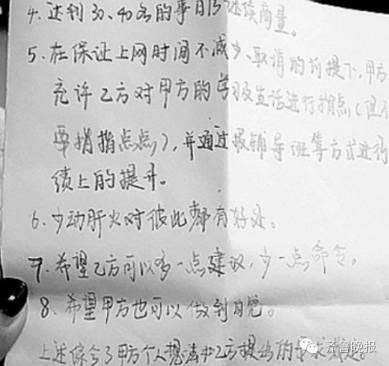 4. 达到30、40名的事目后继续商量。
5. 在保证上网时间不减少、取消的前提下，甲方
允许乙方对甲方的学习及生活进行指点（但
要指指点点），并通过报辅导班等方式进行
绩上的提升。
6. 少动肝火对彼此都有好处。
7. 希望乙方可以多一点建议，少一点命令。
8. 希望甲方也可以做到自觉。
上述综合了甲方个人想法和乙方提出的要求
齐鲁晚报